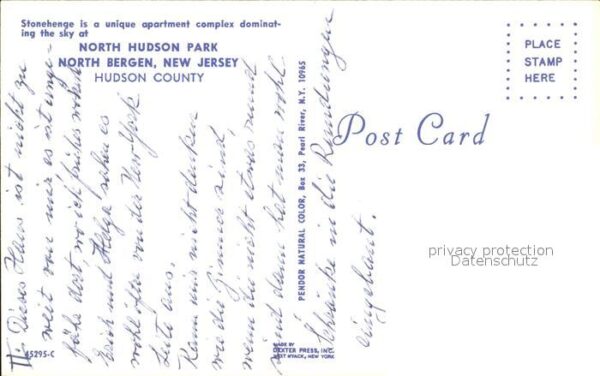 Stonehenge is a unique apartment complex dominat-
ing the sky at
NORTH HUDSON PARK
NORTH BERGEN, NEW JERSEY
HUDSON COUNTY
PLACE
STAMP
HERE
Post Card
II. Dieses Haus ist nicht zu
weit von mir es ist unge-
fähr dort, wo ich früher wohnte
Erich und Helga sahen es
wohl öfter von der New-York
Seite aus.
Kann mir nicht denken
wie die Zimmer sind,
wenn die nicht etwas rund
sind dann hat man wohl
Schränke in die Rundungen
eingebaut.
PENDOR NATURAL COLOR, Box 33, Pearl River, N.Y. 10965
45295-C
MADE BY
DEXTER PRESS, INC.
WEST NYACK, NEW YORK
privacy protection
Datenschutz